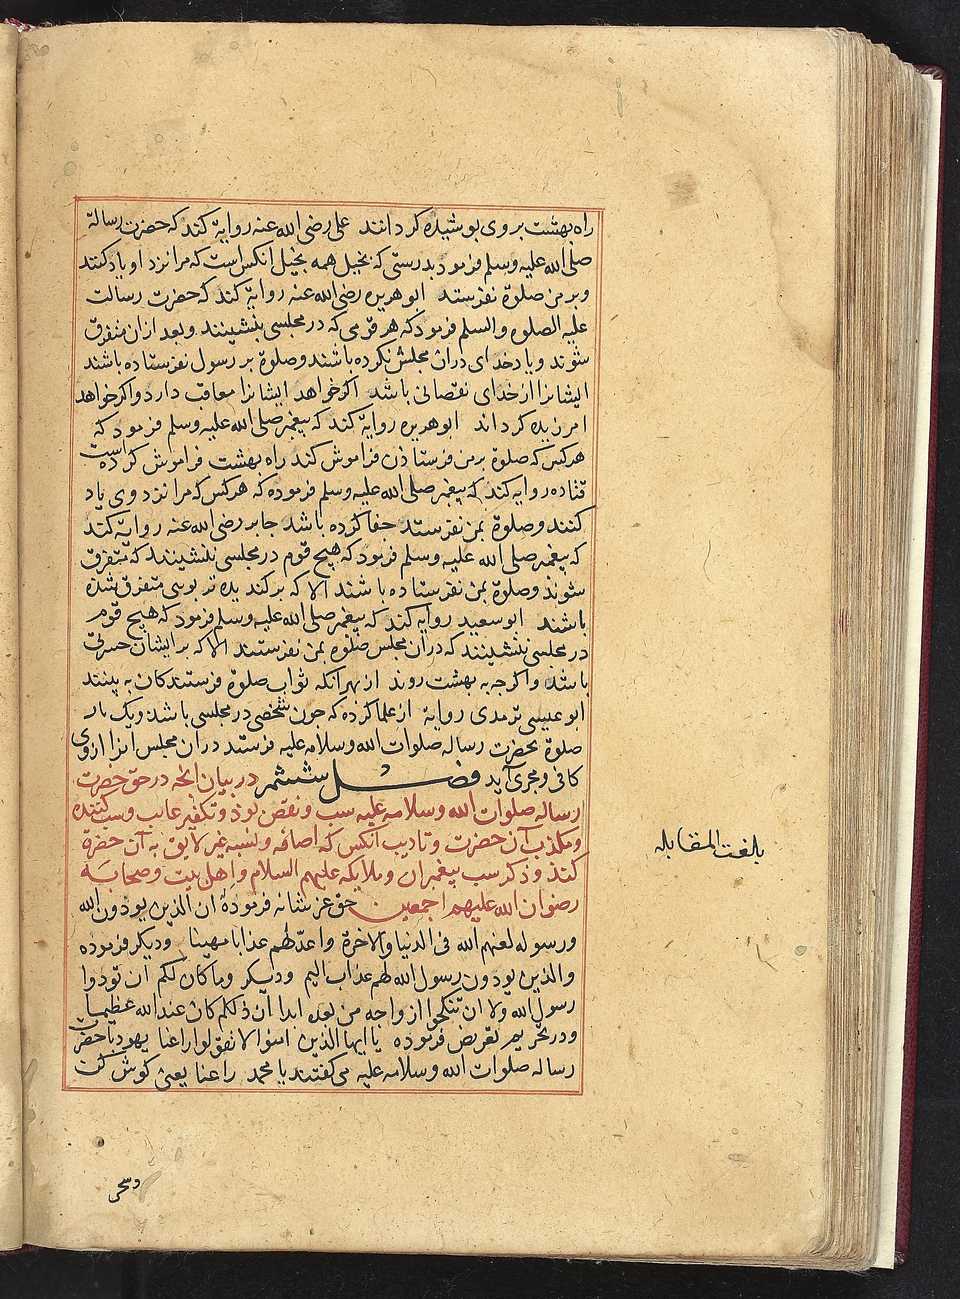 راه بهشت بروی پوشیده کردانند علی رضی الله عنه روایة کند که حضرت رسالة
صلی الله علیه وسلم فرمود بدرستی که بخیل همه بخیل انکس است که مرا نزد او یاد کنند
وبر من صلوة نفرستد ابو هریره رضی الله عنه روایة کند که حضرت رسالت
علیه الصلوه والسلم فرمود که هر قومی که در مجلسی بنشینند وبعد ازان متفرق
شوند و یاد خدای دران مجلس نکرده باشند وصلوة بر رسول نفرستاده باشند
ایشانرا از خدای نقصانی باشد اکر خواهد ایشانرا معاقب دارد واکر خواهد
امرزیده کرداند ابو هریره روایة کند که پیغمبر صلی الله علیه وسلم فرمود که
هرکس که صلوة بر من فرستادن فراموش کند راه بهشت فراموش کرده است
قتاده روایه کند که پیغمبر صلی الله علیه وسلم فرموده که هرکس که مرا نزد وی یاد
کنند وصلوة بمن نفرستد جفا کرده باشد جابر رضی الله عنه روایة کند
که پیغمبر صلی الله علیه وسلم فرمود که هیچ قوم در مجلسی ننشینند که متفرق
شوند وصلوة بمن نفرستاده باشند الا که بر کندیده تر بوی متفرق شده
باشند ابو سعید روایه کند که پیغمبر صلی الله علیه وسلم فرمود که هیچ قوم
در مجلسی ننشینند که دران مجلس صلوة بمن نفرستند الا که بر ایشان حسرتی
باشد واکرچه به بهشت روند از بهر انکه ثواب صلوة فرستندکان به بینند
ابو عیسی ترمدی روایة از علما کرده که چون شخصی در مجلسی باشد ویک بار
صلوة بحضرت رسالة صلوات الله وسلامه علیه فرستد دران مجلس انرا ازوی
کافی ومجری آید فصل ششم در بیان انچه در حق حضرت
رسالة صلوات الله وسلامه علیه سب ونقص بود وتکفیر عایب وسب کننده
ومکذب آن حضرت وتادیب انکس که اضافه ونسبه غیر لایق به آن حضرة
کند وذکر سب پیغمبران وملایکه علیهم السلام واهل بیت وصحابة
رضوان الله علیهم اجمعین حق عز شانه فرموده ان الذین یوذون الله
ورسوله لعنهم الله فی الدنیا والاخرة واعد لهم عذابا مهینا ودیکر فرموده
والذین یوذون رسول الله لهم عذاب الیم ودیکر وما کان لکم ان توذوا
رسول الله ولا ان تنکحوا ازواجه من بعده ابدا ان ذلکم کان عند الله عظیما
ودر تحریم تعریض فرموده یا ایها الذین امنوا لا تقولوا راعنا یهود با حضرت
رسالة صلوات الله وسلامه علیه می کفتند یا محمد راعنا یعنی کوش کن
بلغت المقابله